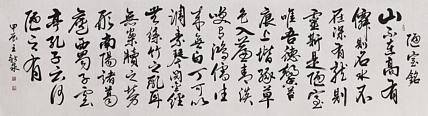 陋室銘
山不在高有
僊則名水不
在深有龍則
靈斯是陋室
唯吾德馨苔
痕上堦綠草
色入簾青談
笑有鴻儒往
來無白丁可以
調素琴閱金經
無絲竹之亂耳
無案牘之勞
形南陽諸葛
廬西蜀子雲
亭孔子云何
陋之有